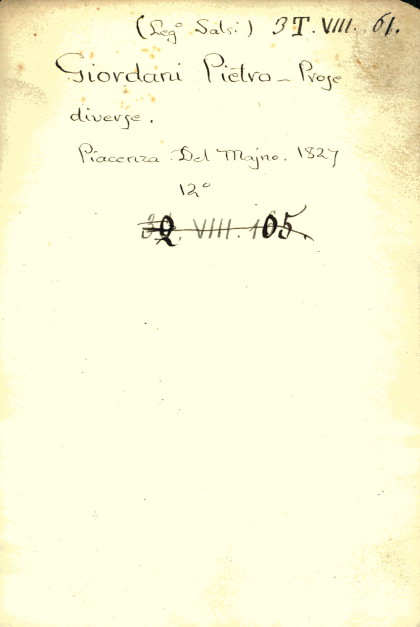 (Leg° Salsi) 3T. VIII. 61.
Giordani Pietro - Prose
diverse.
Piacenza. Del Majno. 1827
12°
VIII. 105.